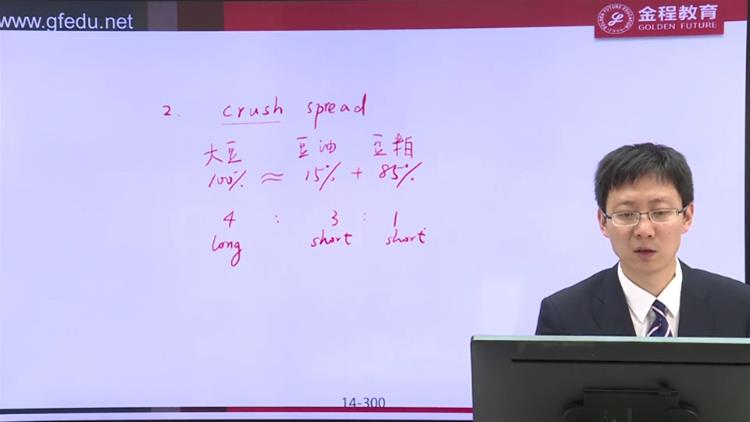 www.gfedu.net
金程教育
GOLDEN FUTURE
2. crush spread
大豆 豆油 豆粕
100% ≈ 15% + 85%
4 : 3 : 1
long short short
14-300